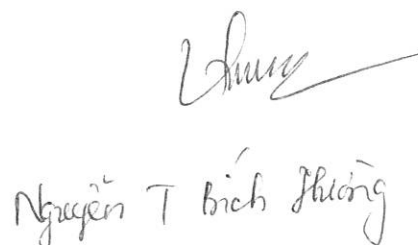 Nguyễn T Bích Hường